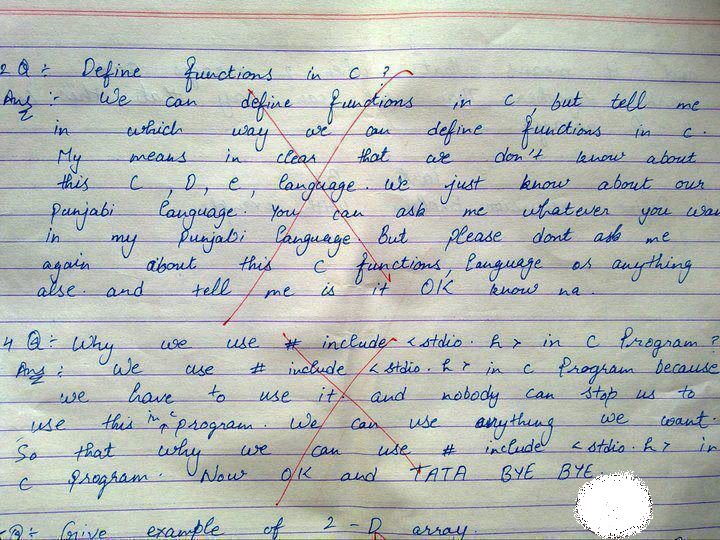 2 Q :- Define functions in C ?
Ans :- We can define functions in C, but tell me
in which way we can define functions in C.
My means in clear that we don't know about
this C, D, e, language. We just know about our
Punjabi language. You can ask me whatever you wan
in my Punjabi language. But please dont ask me
again about this C functions, language or anything
alse. and tell me is it OK know na.
4 Q :- Why we use # include <stdio.h> in C Program ?
Ans :- We use # include <stdio.h> in C Program because
we have to use it. and nobody can stop us to
use this in C program. We can use anything we want.
So that why we can use # include <stdio.h> in
C Program. Now OK and TATA BYE BYE.
Q :- Give example of 2-D array.